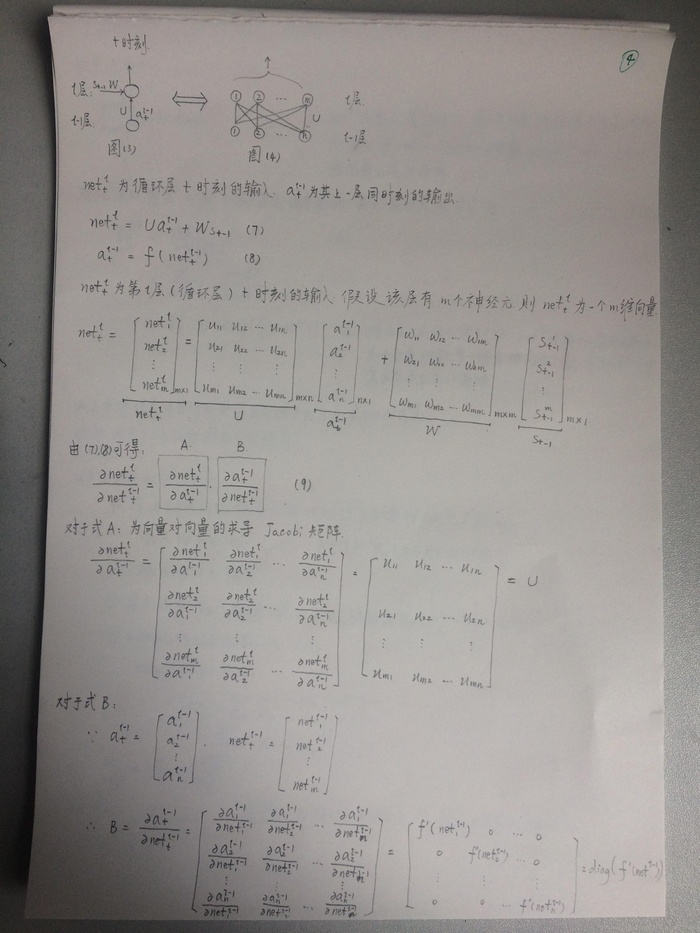 ④
t时刻.
l层: S_{t-1} W
U a_t^{l-1}
l-1层
图(3)
⟺
1 2 … m l层
U
1 2 … n l-1层
图(4)
net_t^l 为循环层 t 时刻的输入. a_t^{l-1} 为其上一层同时刻的输出.
net_t^l = U a_t^{l-1} + W S_{t-1} (7)
a_t^{l-1} = f(net_t^{l-1}) (8)
net_t^l 为第l层(循环层) t 时刻的输入 假设该层有 m个神经元 则 net_t^l 为一个m维向量
net_t^l = [net_1^l; net_2^l; ⋮; net_m^l]_{m×1} = [u_{11} u_{12} … u_{1n}; u_{21} u_{22} … u_{2n}; ⋮ ⋮ ⋮; u_{m1} u_{m2} … u_{mn}]_{m×n} [a_1^{l-1}; a_2^{l-1}; ⋮; a_n^{l-1}]_{n×1} + [w_{11} w_{12} … w_{1m}; w_{21} w_{22} … w_{2m}; ⋮ ⋮ ⋮; w_{m1} w_{m2} … w_{mm}]_{m×m} [S_{t-1}^1; S_{t-1}^2; ⋮; S_{t-1}^m]_{m×1}
net_t^l U a_t^{l-1} W S_{t-1}
由(7),(8)可得: A. B.
∂net_t^l/∂net_t^{l-1} = ∂net_t^l/∂a_t^{l-1} · ∂a_t^{l-1}/∂net_t^{l-1} (9)
对于式A: 为向量对向量的求导 Jacobi 矩阵.
∂net_t^l/∂a_t^{l-1} = [∂net_1^l/∂a_1^{l-1} ∂net_1^l/∂a_2^{l-1} … ∂net_1^l/∂a_n^{l-1}; ∂net_2^l/∂a_1^{l-1} ∂net_2^l/∂a_2^{l-1} … ∂net_2^l/∂a_n^{l-1}; ⋮ ⋮ ⋮; ∂net_m^l/∂a_1^{l-1} ∂net_m^l/∂a_2^{l-1} … ∂net_m^l/∂a_n^{l-1}] = [u_{11} u_{12} … u_{1n}; u_{21} u_{22} … u_{2n}; ⋮ ⋮ ⋮; u_{m1} u_{m2} … u_{mn}] = U
对于式B:
∵ a_t^{l-1} = [a_1^{l-1}; a_2^{l-1}; ⋮; a_n^{l-1}]. net_t^{l-1} = [net_1^{l-1}; net_2^{l-1}; ⋮; net_m^{l-1}]
∴ B = ∂a_t^{l-1}/∂net_t^{l-1} = [∂a_1^{l-1}/∂net_1^{l-1} ∂a_1^{l-1}/∂net_2^{l-1} … ∂a_1^{l-1}/∂net_m^{l-1}; ∂a_2^{l-1}/∂net_1^{l-1} ∂a_2^{l-1}/∂net_2^{l-1} … ∂a_2^{l-1}/∂net_m^{l-1}; ⋮ ⋮ ⋮; ∂a_n^{l-1}/∂net_1^{l-1} ∂a_n^{l-1}/∂net_2^{l-1} … ∂a_n^{l-1}/∂net_m^{l-1}] = [f'(net_1^{l-1}) 0 … 0; 0 f'(net_2^{l-1}) … 0; ⋮ ⋮ ⋮; 0 0 … f'(net_n^{l-1})] = diag(f'(net^{l-1}))